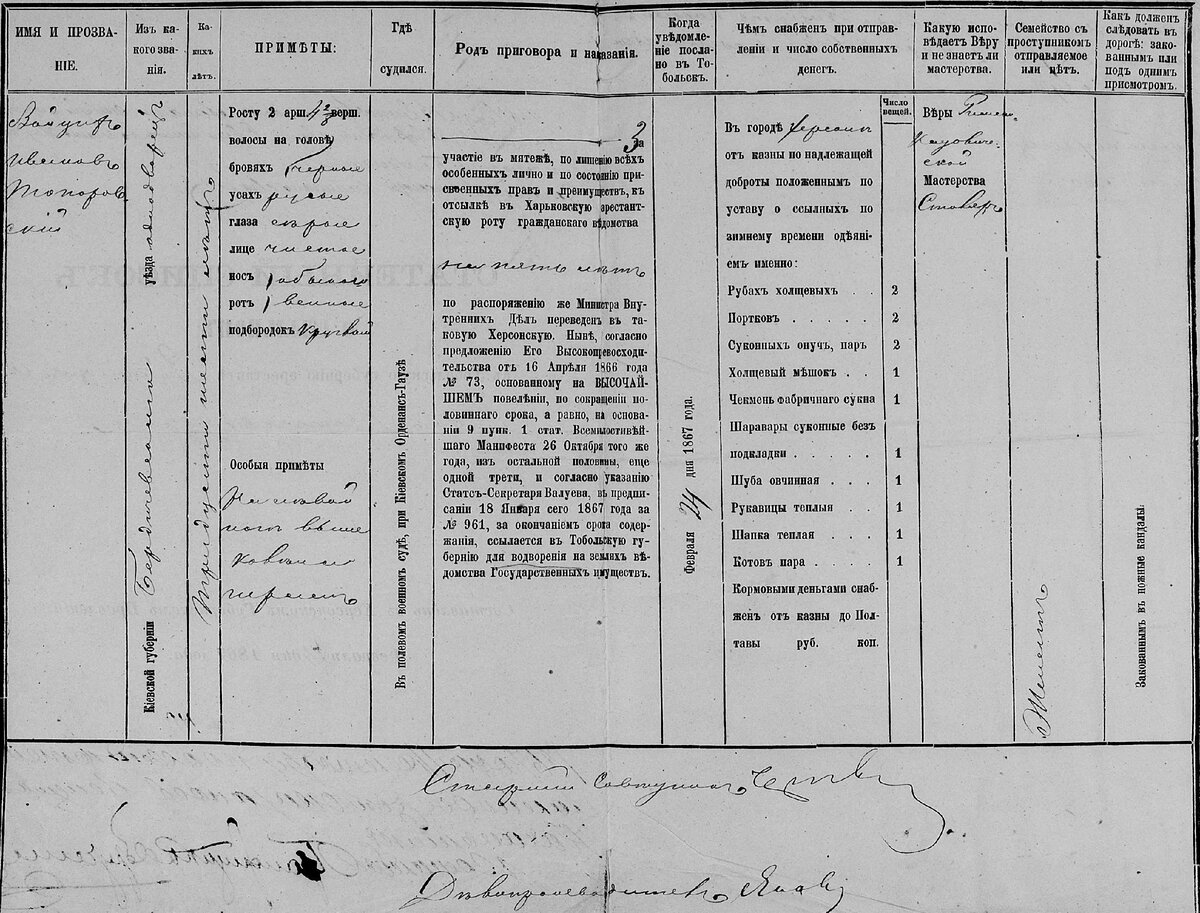 ИМЯ И ПРОЗВА-
НІЕ.
Изъ ка-
кого зва-
нія.
Ка-
кихъ
лѣтъ.
ПРИМѢТЫ:
Гдѣ
судился.
Родъ приговора и наказанія.
Когда
увѣдомле-
ніе посла-
но въ То-
больскъ.
Чѣмъ снабженъ при отправ-
леніи и число собственныхъ
денегъ.
Какую испо-
вѣдаетъ Вѣру
и не знаетъ ли
мастерства.
Семейство съ
проступникомъ
отправляемое
или нѣтъ.
Какъ долженъ
слѣдовать въ
дорогѣ: зако-
ваннымъ или
подъ однимъ
присмотромъ.
Войцихъ
Ивановъ
Топоров
скій
Кіевской губерніи Бердичевскаго уѣзда однодворецъ
Тридцати шести лѣтъ
Росту 2 арш. 4 2/8 верш.
волосы на головѣ
бровяхъ черные
усахъ русые
глаза сѣрые
лице чистое
носъ обыкно
ротъ венные
подбородокъ круглый
Особыя примѣты
На лѣвой
ногѣ выше
колѣна
шрамъ
Въ полевомъ военномъ судѣ, при Кіевскомъ Орденансъ-Гаузѣ
За
участіе въ мятежѣ, по лишеніи всѣхъ
особенныхъ лично и по состоянію при-
своенныхъ правъ и преимуществъ, къ
отсылкѣ въ Харьковскую арестант-
скую роту гражданскаго вѣдомства
на пять лѣтъ
по распоряженію же Министра Вну-
треннихъ Дѣлъ переведенъ въ та-
ковую Херсонскую. Нынѣ, согласно
предложенію Его Высокопревосходи-
тельства отъ 16 Апрѣля 1866 года
№ 73, основанному на ВЫСОЧАЙ-
ШЕМЪ повелѣніи, по сокращеніи по-
ловиннаго срока, а равно, на основа-
ніи 9 пунк. 1 стат. Всемилостивѣй-
шаго Манифеста 26 Октября того же
года, изъ остальной половины, еще
одной трети, и согласно указанію
Статсъ-Секретаря Валуева, въ предпи-
саніи 18 Января сего 1867 года за
№ 961, за окончаніемъ срока содер-
жанія, ссылается въ Тобольскую гу-
бернію для водворенія на земляхъ вѣ-
домства Государственныхъ имуществъ.
Февраля 24 дня 1867 года.
Въ городѣ Херсонѣ
отъ казны по надлежащей
доброты положеннымъ по
уставу о ссыльныхъ по
зимнему времени одѣяні-
емъ именно:
Число
вещей.
Рубахъ холщевыхъ . . 2
Портковъ . . . . . 2
Суконныхъ онучъ, паръ 2
Холщевый мѣшокъ . . 1
Чекмень фабричнаго сукна 1
Шаравары суконные безъ
подкладки . . . . . 1
Шуба овчинная . . . 1
Рукавицы теплыя . . 1
Шапка теплая . . . 1
Котовъ пара . . . . 1
Кормовыми деньгами снаб-
женъ отъ казны до Пол-
тавы руб. коп.
Вѣры Римско
Католиче-
ской
Мастерства
Столяръ
Женатъ
Закованнымъ въ ножные кандалы.
Старшій Совѣтникъ
Дѣлопроизводитель